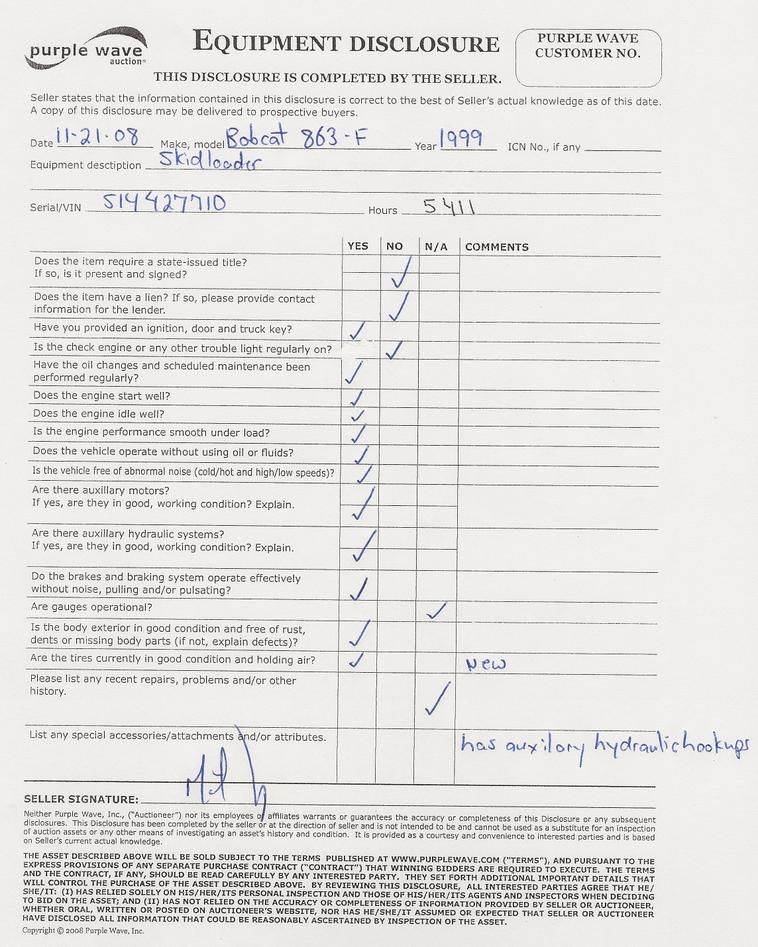 purple wave
auction®
EQUIPMENT DISCLOSURE
PURPLE WAVE
CUSTOMER NO.
THIS DISCLOSURE IS COMPLETED BY THE SELLER.
Seller states that the information contained in this disclosure is correct to the best of Seller's actual knowledge as of this date.
A copy of this disclosure may be delivered to prospective buyers.
Date 11-21-08 Make, model Bobcat 863-F Year 1999 ICN No., if any
Equipment desctiption Skidloader
Serial/VIN 514427710 Hours 5411
YES NO N/A COMMENTS
Does the item require a state-issued title?
If so, is it present and signed? ✓
Does the item have a lien? If so, please provide contact
information for the lender. ✓
Have you provided an ignition, door and truck key? ✓
Is the check engine or any other trouble light regularly on? ✓
Have the oil changes and scheduled maintenance been
performed regularly? ✓
Does the engine start well? ✓
Does the engine idle well? ✓
Is the engine performance smooth under load? ✓
Does the vehicle operate without using oil or fluids? ✓
Is the vehicle free of abnormal noise (cold/hot and high/low speeds)? ✓
Are there auxillary motors?
If yes, are they in good, working condition? Explain. ✓
Are there auxillary hydraulic systems?
If yes, are they in good, working condition? Explain. ✓
Do the brakes and braking system operate effectively
without noise, pulling and/or pulsating? ✓
Are gauges operational? ✓
Is the body exterior in good condition and free of rust,
dents or missing body parts (if not, explain defects)? ✓
Are the tires currently in good condition and holding air? ✓ New
Please list any recent repairs, problems and/or other
history. ✓
List any special accessories/attachments and/or attributes. has auxilory hydraulic hookups
SELLER SIGNATURE:
Neither Purple Wave, Inc., ("Auctioneer") nor its employees of affiliates warrants or guarantees the accuracy or completeness of this Disclosure or any subsequent
disclosures. This Disclosure has been completed by the seller or at the direction of seller and is not intended to be and cannot be used as a substitute for an inspection
of auction assets or any other means of investigating an asset's history and condition. It is provided as a courtesy and convenience to interested parties and is based
on Seller's current actual knowledge.
THE ASSET DESCRIBED ABOVE WILL BE SOLD SUBJECT TO THE TERMS PUBLISHED AT WWW.PURPLEWAVE.COM ("TERMS"), AND PURSUANT TO THE
EXPRESS PROVISIONS OF ANY SEPARATE PURCHASE CONTRACT ("CONTRACT") THAT WINNING BIDDERS ARE REQUIRED TO EXECUTE. THE TERMS
AND THE CONTRACT, IF ANY, SHOULD BE READ CAREFULLY BY ANY INTERESTED PARTY. THEY SET FORTH ADDITIONAL IMPORTANT DETAILS THAT
WILL CONTROL THE PURCHASE OF THE ASSET DESCRIBED ABOVE. BY REVIEWING THIS DISCLOSURE, ALL INTERESTED PARTIES AGREE THAT HE/
SHE/IT: (I) HAS RELIED SOLELY ON HIS/HER/ITS PERSONAL INSPECTION AND THOSE OF HIS/HER/ITS AGENTS AND INSPECTORS WHEN DECIDING
TO BID ON THE ASSET; AND (II) HAS NOT RELIED ON THE ACCURACY OR COMPLETENESS OF INFORMATION PROVIDED BY SELLER OR AUCTIONEER,
WHETHER ORAL, WRITTEN OR POSTED ON AUCTIONEER'S WEBSITE, NOR HAS HE/SHE/IT ASSUMED OR EXPECTED THAT SELLER OR AUCTIONEER
HAVE DISCLOSED ALL INFORMATION THAT COULD BE REASONABLY ASCERTAINED BY INSPECTION OF THE ASSET.
Copyright © 2008 Purple Wave, Inc.